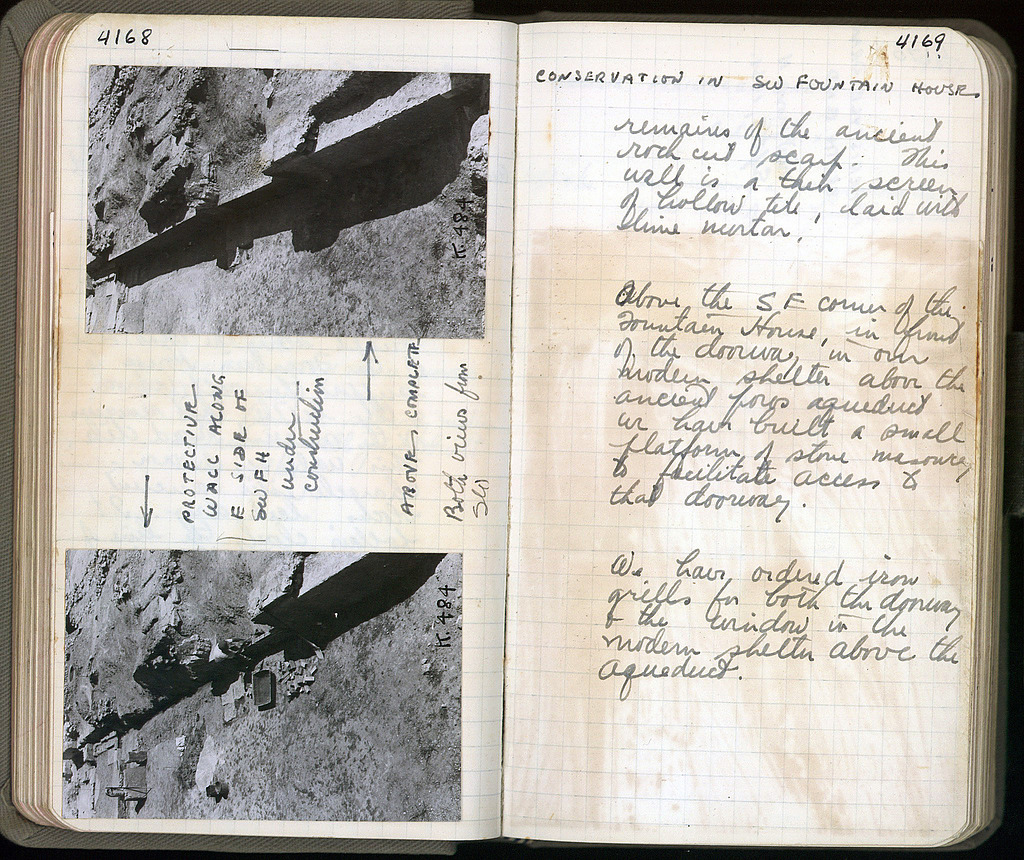 4168
K. 484
PROTECTIVE
WALL ALONG
E SIDE OF
SW FH
under
construction
ABOVE, COMPLETE
Both views from
SW
K. 484
4169
CONSERVATION IN SW FOUNTAIN HOUSE
remains of the ancient
rock cut scarp. This
wall is a thin screen,
of hollow tile, laid with
lime mortar.
Above the SE corner of the
Fountain House, in front
of the doorway in our
modern shelter above the
ancient poros aqueduct
we have built a small
platform of stone masonry
to facilitate access to
that doorway.
We have ordered iron
grills for both the doorway
& the window in the
modern shelter above the
aqueduct.